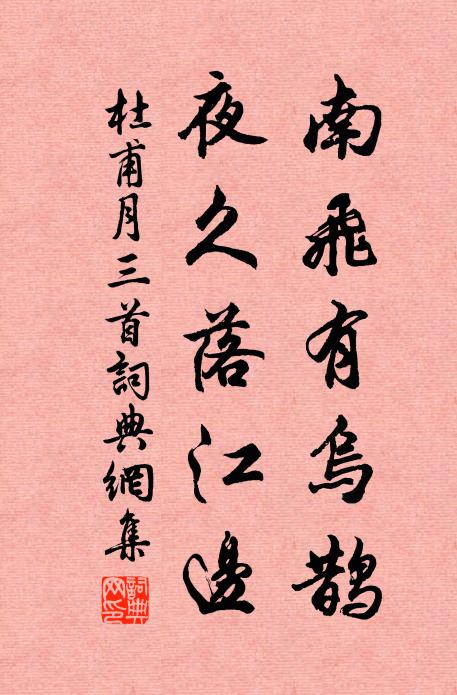 南飛有烏鵲
夜久落江邊
杜甫月三首詞典網集
詞典網印